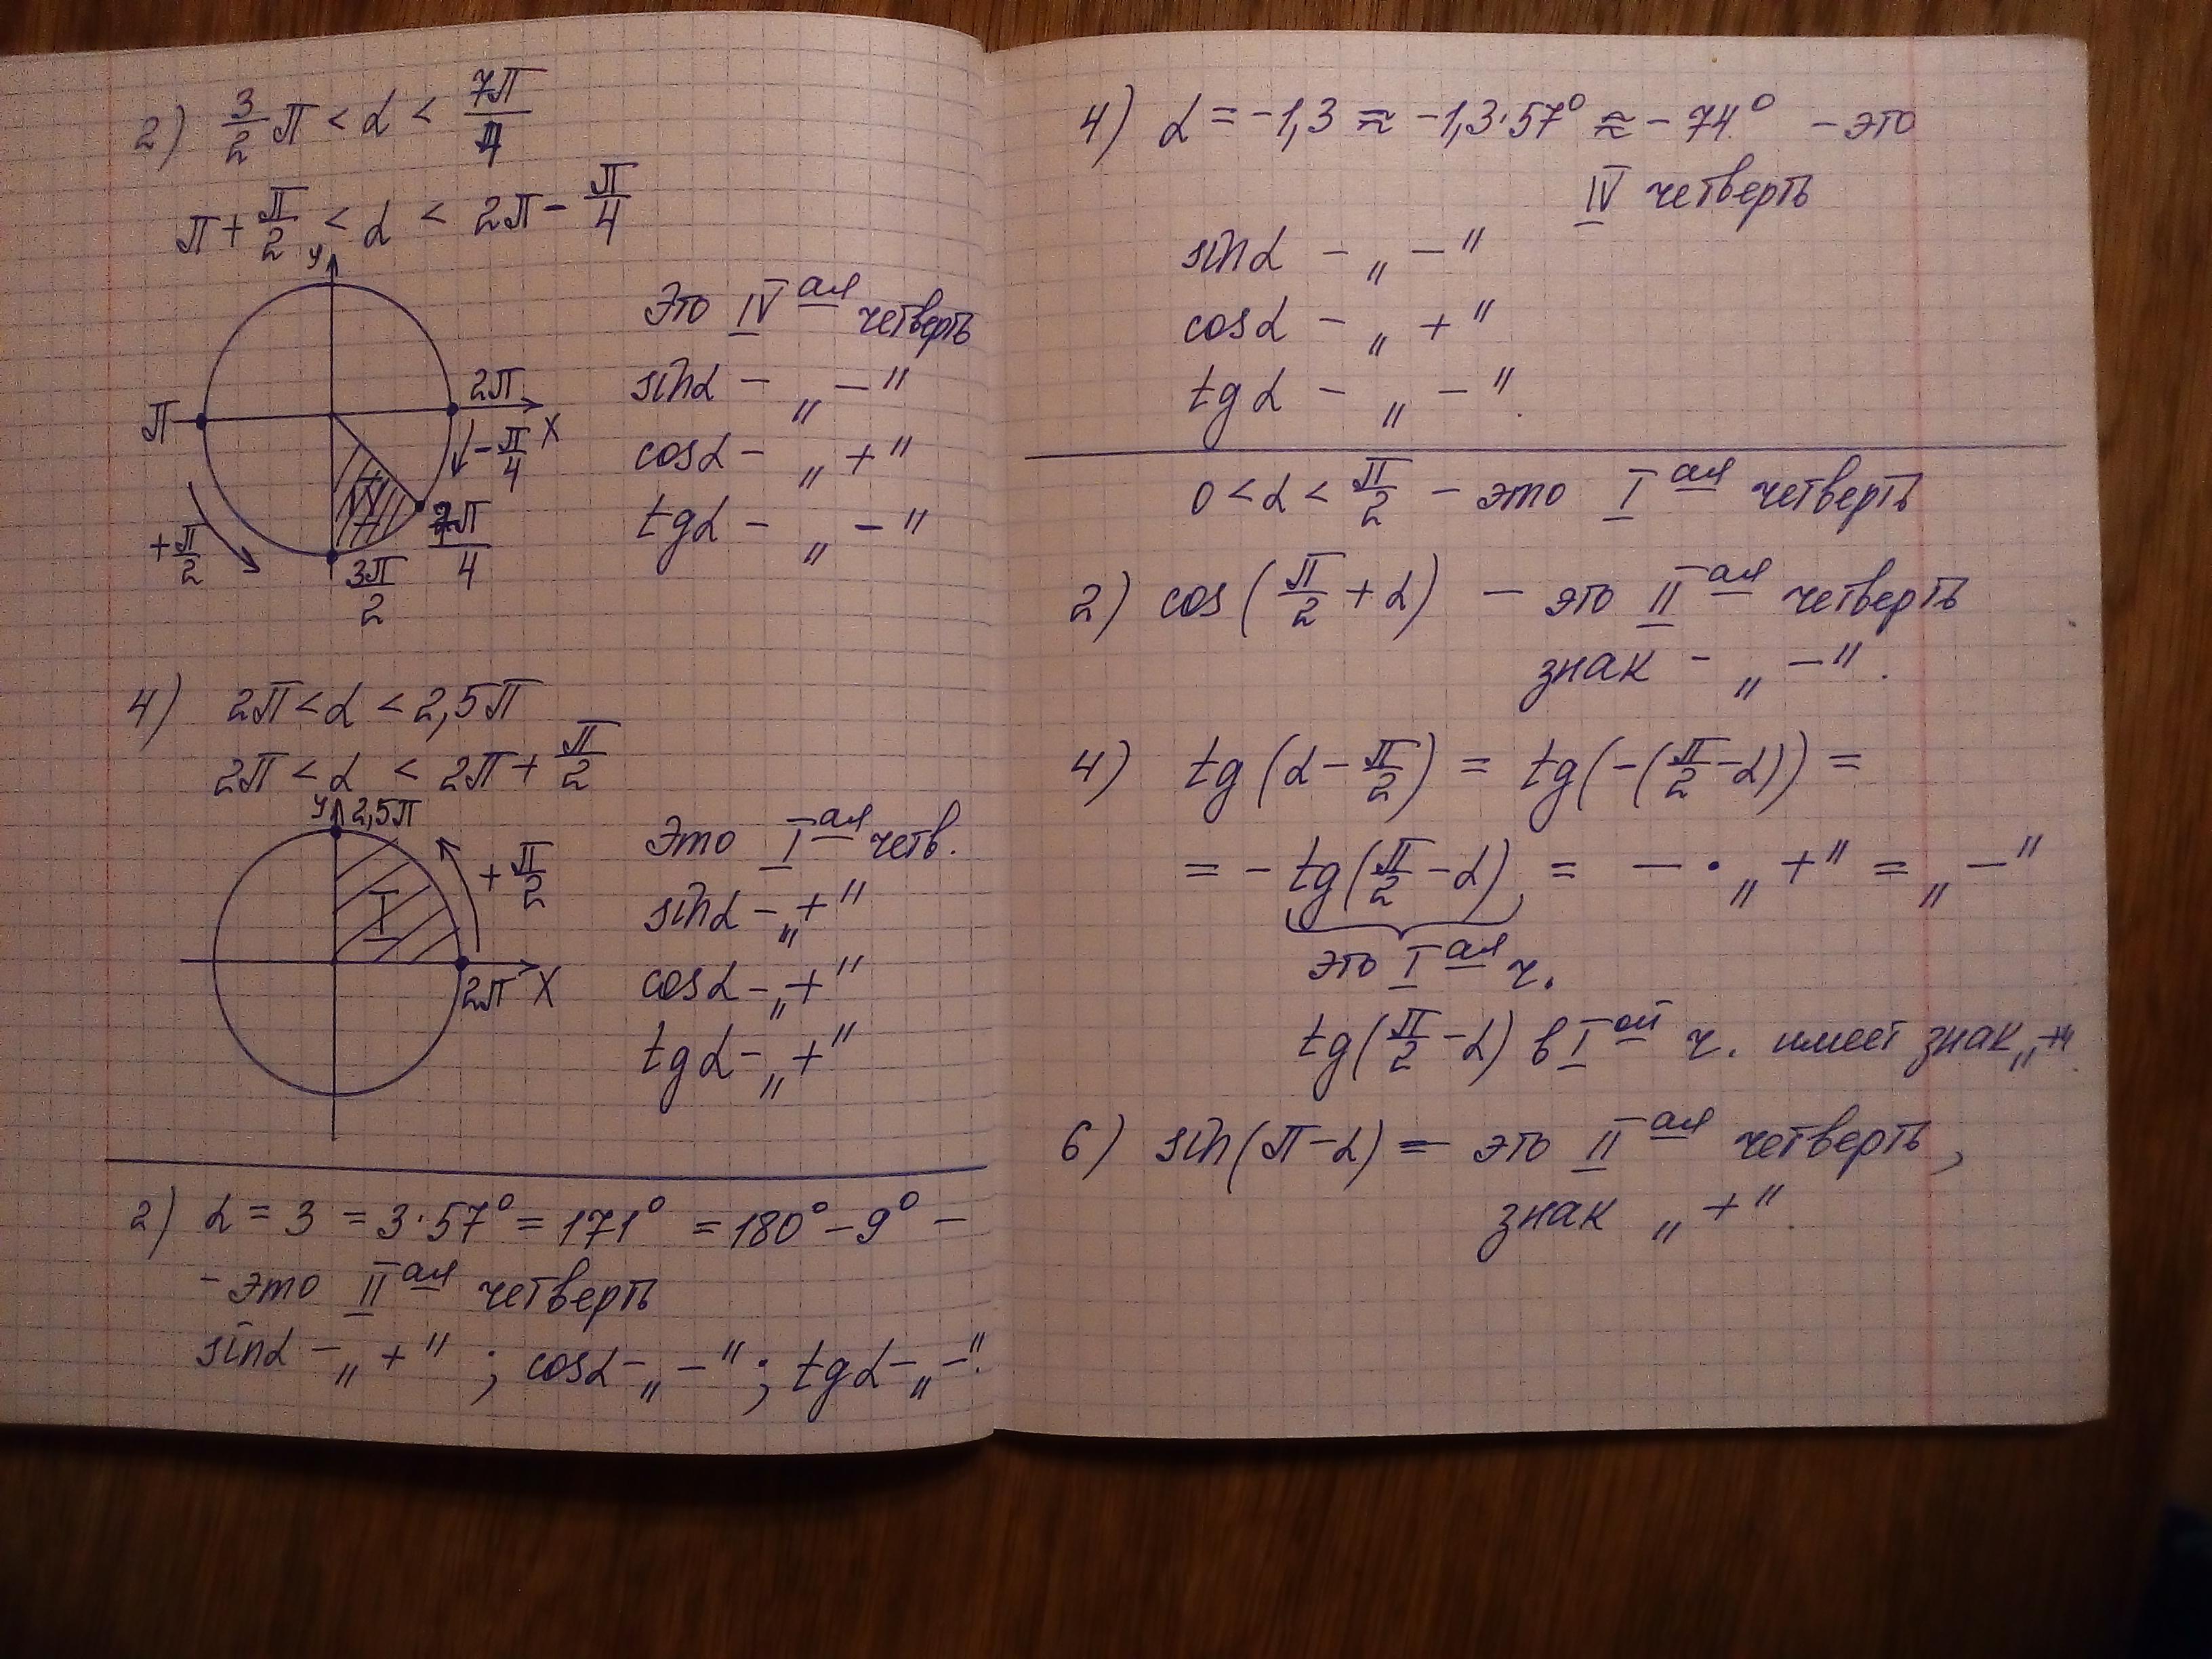 2) 3/2 π < α < 7π/4
π + π/2 < α < 2π − π/4
y
Это IV ая четверть
sinα – „−"
cosα – „+"
tgα – „−"
π
2π
x
−π/4
IV
7π/4
+π/2
3π/2
4) 2π < α < 2,5π
2π < α < 2π + π/2
y 2,5π
Это I ая четв.
sinα – „+"
cosα – „+"
tgα – „+"
+π/2
I
2π x
2) α = 3 = 3·57° = 171° = 180° − 9° –
– это II ая четверть
sinα – „+" ; cosα – „−" ; tgα – „−".
4) α = −1,3 ≈ −1,3·57° ≈ −74° – это
IV четверть
sinα – „−"
cosα – „+"
tgα – „−".
0 < α < π/2 – это I ая четверть
2) cos(π/2 + α) – это II ая четверть
знак – „−".
4) tg(α − π/2) = tg(−(π/2 − α)) =
= − tg(π/2 − α) = − · „+" = „−"
это I ая ч.
tg(π/2 − α) в I ой ч. имеет знак „+"
6) sin(π − α) – это II ая четверть,
знак „+".